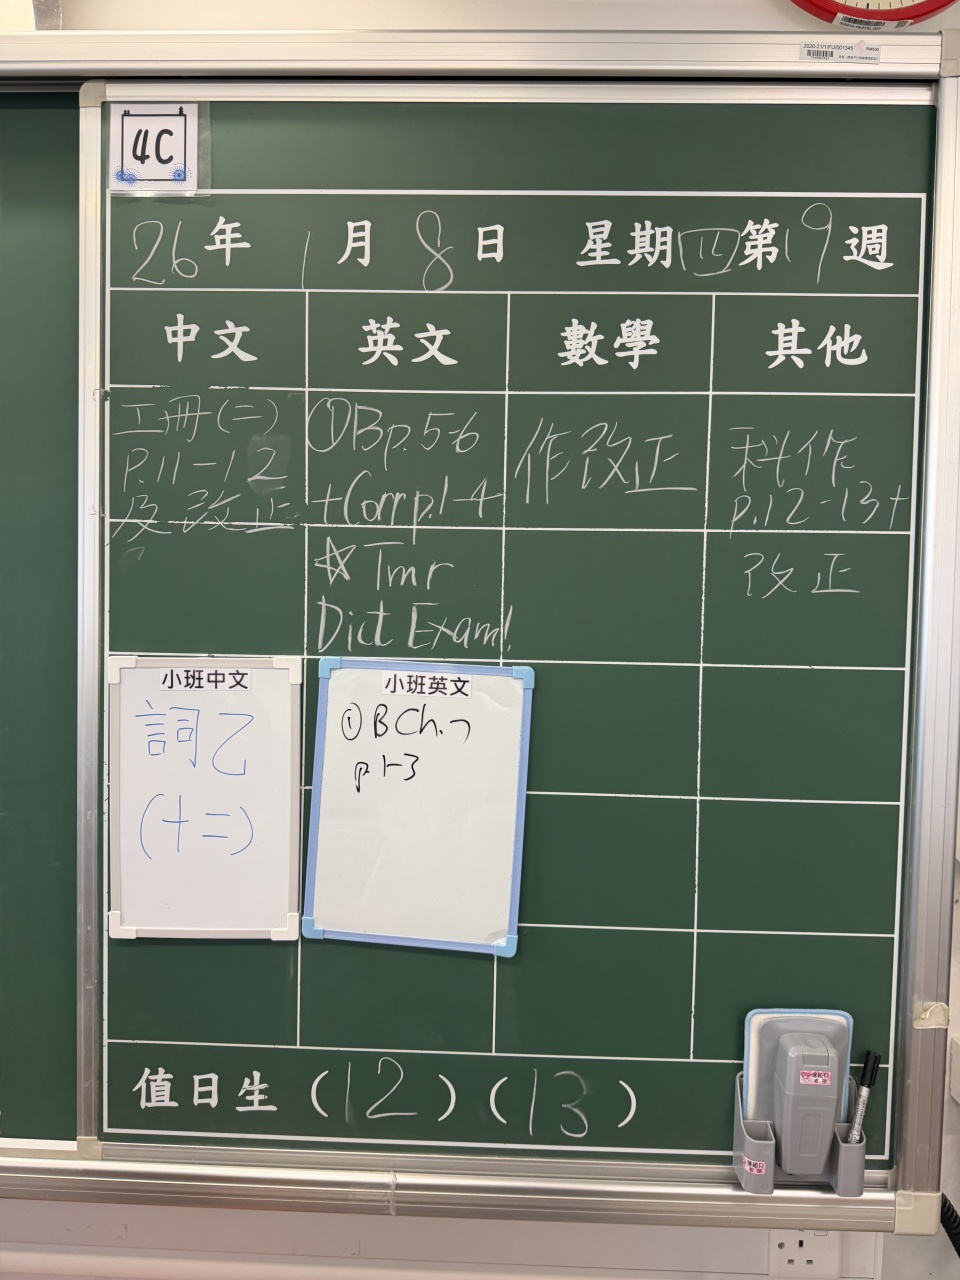 2020-21/1/FU/001345
4C
26年 1月8日 星期四第19週
中文 英文 數學 其他
工冊(二)
P.11-12
及改正
①Bp.5-6
+Corr p.1-4
☆Tmr
Dict Exam!
作改正
科作
p.12-13+
改正
小班中文
詞乙
(十二)
小班英文
① B Ch.7
p.1-3
值日生 (12) (13)